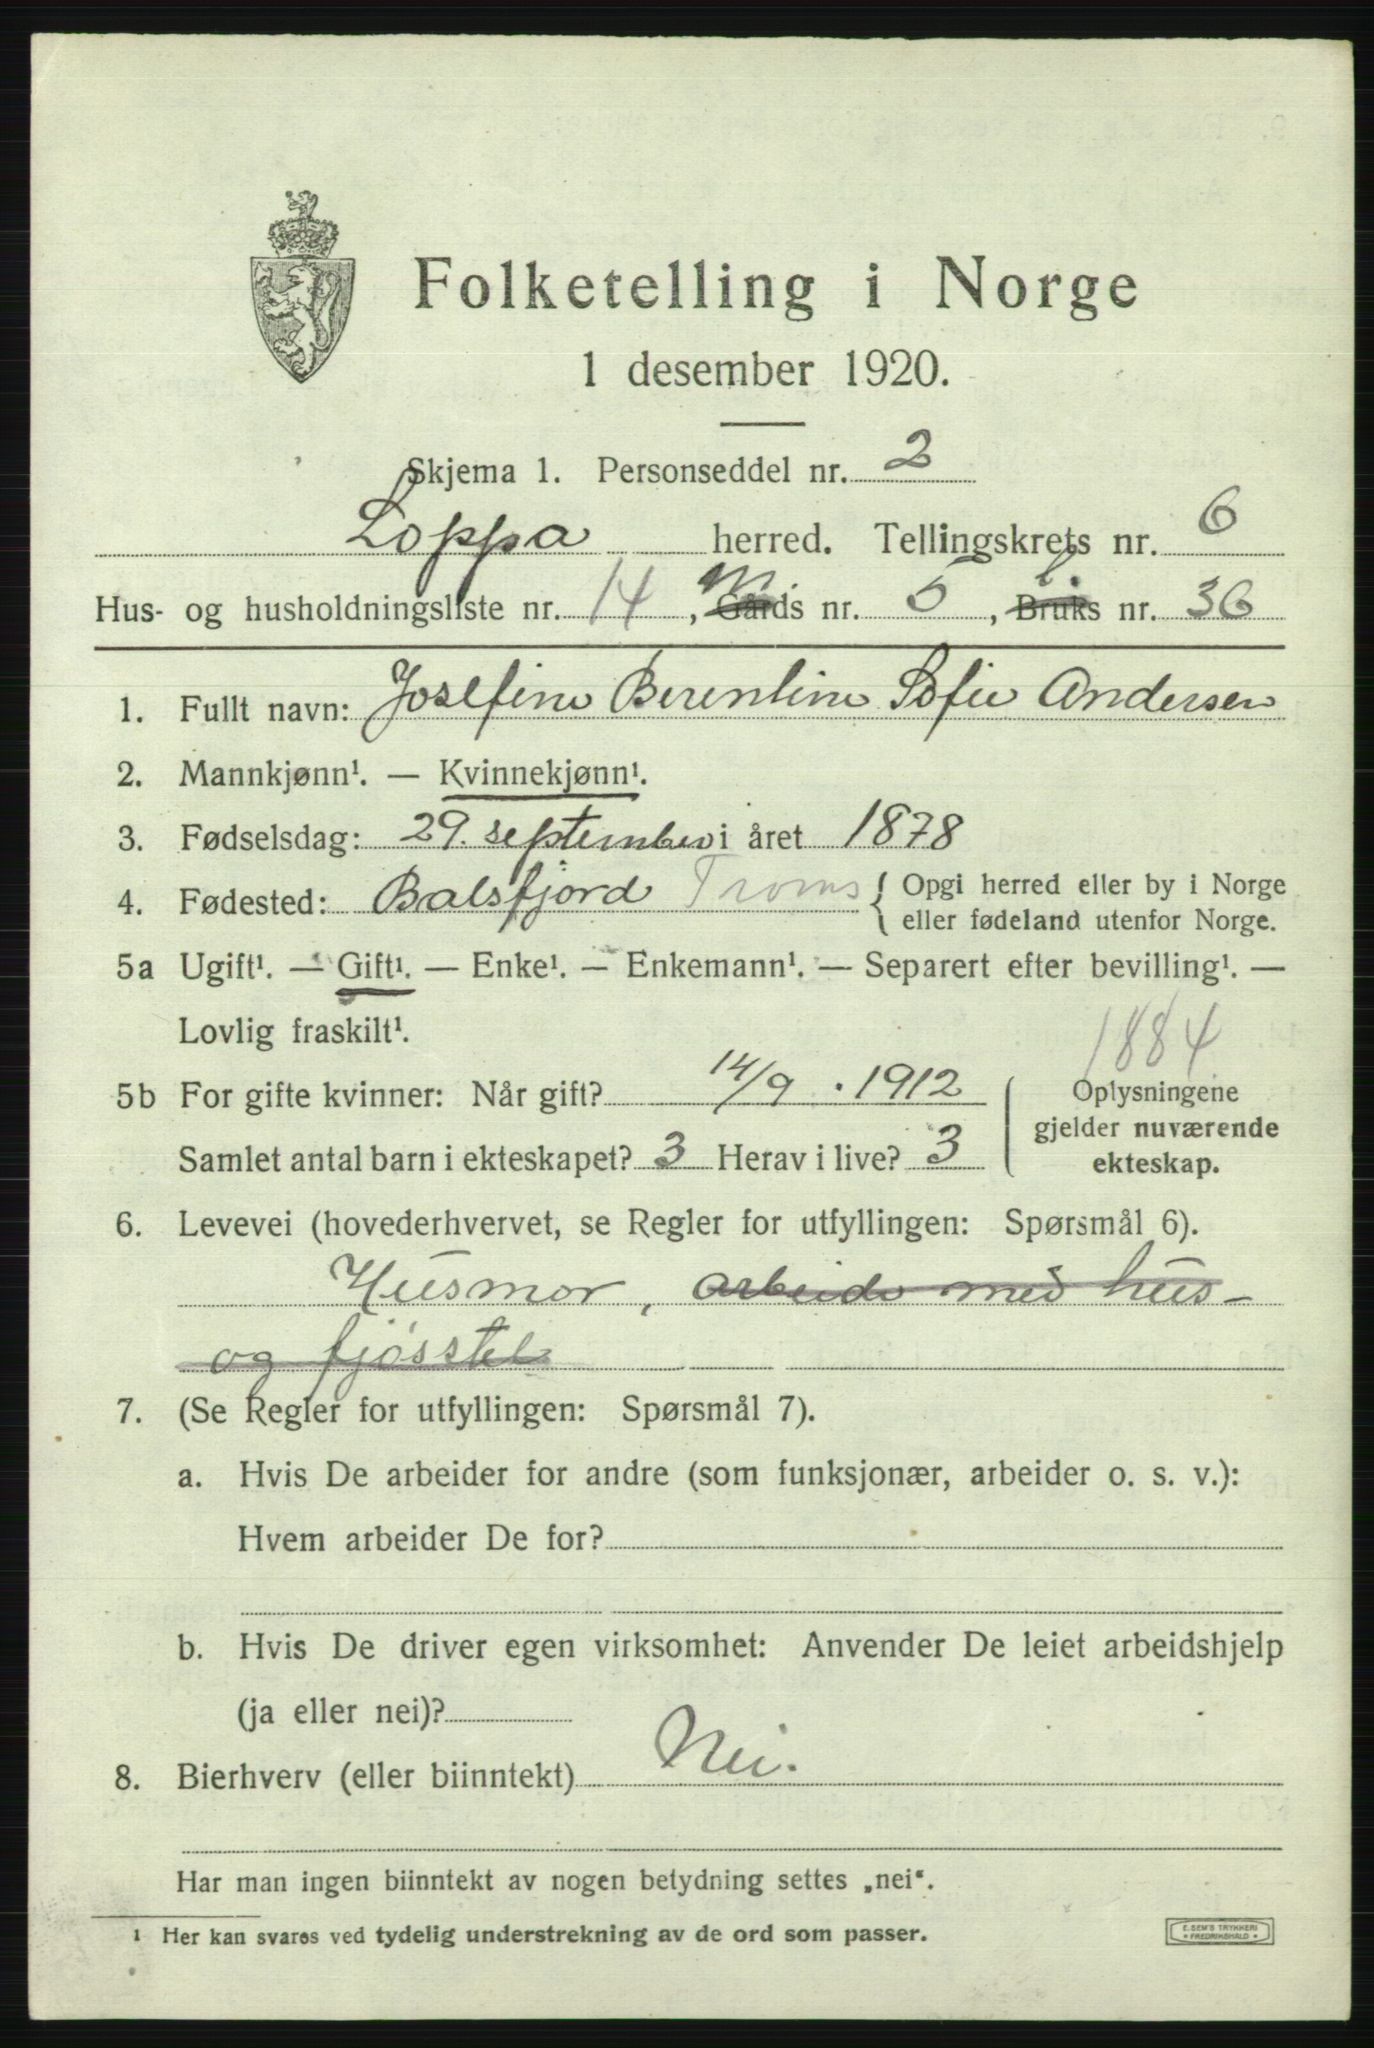 Folketelling i Norge
1 desember 1920.
Skjema 1. Personseddel nr. 2
Loppa herred. Tellingskrets nr. 6
Hus- og husholdningsliste nr. 14, M Gårds nr. 5, L Bruks nr. 36
1. Fullt navn: Josefine Berentine Sofie Andersen
2. Mannkjønn¹. — Kvinnekjønn¹.
3. Fødselsdag: 29. september i året 1878
4. Fødested: Balsfjord Troms { Opgi herred eller by i Norge
eller fødeland utenfor Norge.
5a Ugift¹. — Gift¹. — Enke¹. — Enkemann¹. — Separert efter bevilling¹. —
Lovlig fraskilt¹.
1884
5b For gifte kvinner: Når gift? 14/9 . 1912 Oplysningene
gjelder nuværende
Samlet antal barn i ekteskapet? 3 Herav i live? 3 ekteskap.
6. Levevei (hovederhvervet, se Regler for utfyllingen: Spørsmål 6).
Husmor, arbeide med hus-
og fjøsstel
7. (Se Regler for utfyllingen: Spørsmål 7).
a. Hvis De arbeider for andre (som funksjonær, arbeider o. s. v.):
Hvem arbeider De for?
b. Hvis De driver egen virksomhet: Anvender De leiet arbeidshjelp
(ja eller nei)?
8. Bierhverv (eller biinntekt) Nei.
Har man ingen biinntekt av nogen betydning settes „nei“.
¹ Her kan svares ved tydelig understrekning av de ord som passer.
E. SEM'S TRYKKERI
FREDRIKSHALD